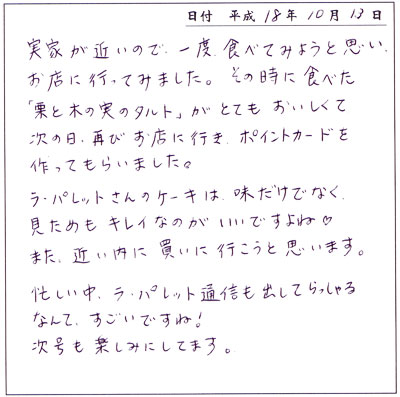 日付 平成 18年 10月 13日
実家が近いので、一度、食べてみようと思い、
お店に行ってみました。その時に食べた
「栗と木の実のタルト」がとてもおいしくて
次の日、再びお店に行き、ポイントカードを
作ってもらいました。
ラ・パレットさんのケーキは、味だけでなく、
見ためもキレイなのがいいですよね♡
また、近い内に買いに行こうと思います。
忙しい中、ラ・パレット通信も出してらっしゃる
なんて、すごいですね!
次号も楽しみにしてます。